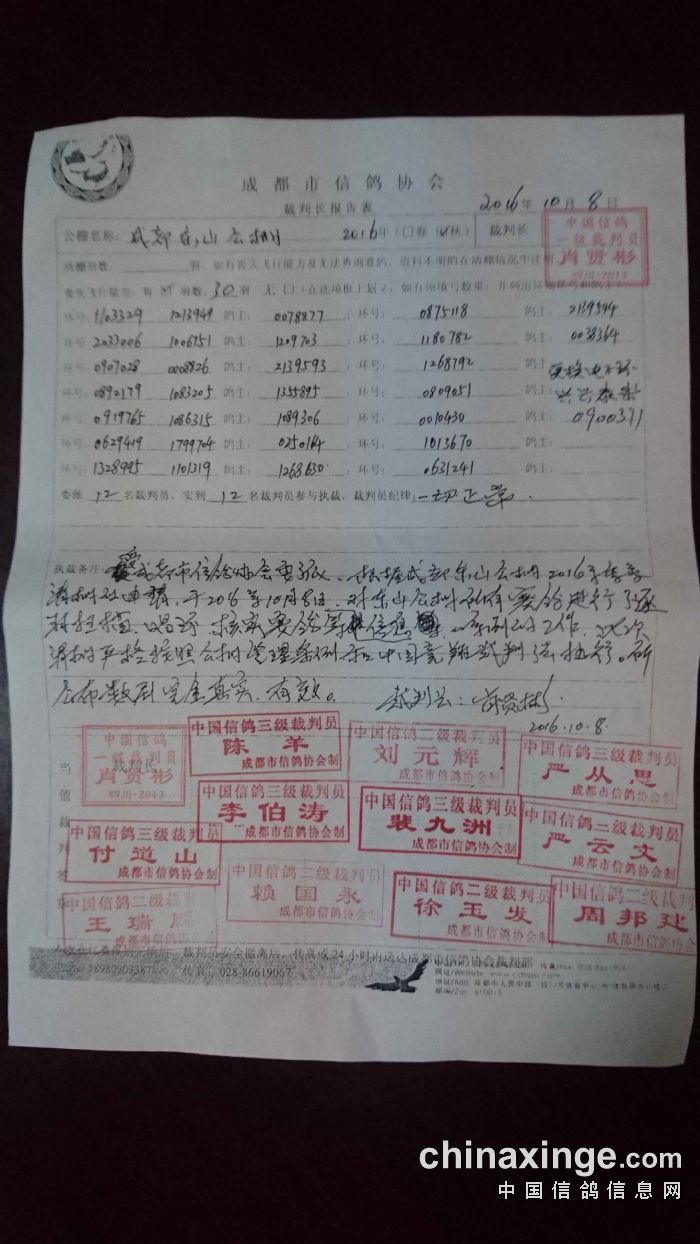 成都市信鸽协会
裁判长报告表
2016年10月8日
公棚名称: 成都东山公棚 2016年(□春 ☑秋) 裁判长
中国信鸽
一级裁判员
肖贤彬
四川·2013
清棚羽数 羽, 如有丧失飞行能力及无法查询赛鸽, 资料不明的在清棚情况中注明
丧失飞行能力: 有☑ 羽数: 30羽 无: □
环号: 1103329 1213949 鸽主: 0078877 环号: 0875118 鸽主: 2139594
环号: 2033006 1006751 鸽主: 1209703 环号: 1180782 鸽主: 0038364
环号: 0907028 0008826 鸽主: 2139593 环号: 1268792 更换电子环
环号: 0890179 1083205 鸽主: 1355895 环号: 0809051
环号: 0919765 1086315 鸽主: 1089306 环号: 0010430 0900371
环号: 0629419 1799704 鸽主: 环号: 1013670 鸽主:
环号: 1328995 1101319 鸽主: 1268630 环号: 0631241 鸽主:
委派 12 名裁判员, 实到 12 名裁判员参与执裁, 裁判员纪律: 一切正常.
执裁备注: 受成都市信鸽协会委派、根据成都东山公棚2016年秋季
清棚 申请, 于2016年10月8日, 对东山公棚所有赛鸽进行了逐
羽扫描、唱环、核实赛鸽 信息 一系列的工作, 此次
清棚严格按照公棚管理条例和中国竞翔裁判法执行。所
公布数到完全真实、有效。 裁判长: 肖贤彬
2016.10.8.
中国信鸽
一级裁判员
肖贤彬
四川·2013
中国信鸽三级裁判员
陈羊
成都市信鸽协会制
中国信鸽二级裁判员
刘元辉
成都市信鸽协会制
中国信鸽三级裁判员
严从思
成都市信鸽协会制
裁判长
当值裁判签章
中国信鸽三级裁判员
李伯涛
成都市信鸽协会制
中国信鸽三级裁判员
裴九洲
成都市信鸽协会制
中国信鸽二级裁判员
严云文
成都市信鸽协会制
中国信鸽三级裁判员
付道山
成都市信鸽协会制
中国信鸽二级裁判员
赖国永
成都市信鸽协会制
中国信鸽二级裁判员
徐玉发
成都市信鸽协会制
中国信鸽二级裁判员
周邦建
成都市信鸽协会制
中国信鸽二级裁判员
王瑞
成都市信鸽协会制
裁判员安全撤离后, 传真或24小时内送达成都市信鸽协会裁判部
18980909387 传真: 028-86619067
网址/Website:
chinaxinge.com
中国信鸽信息网